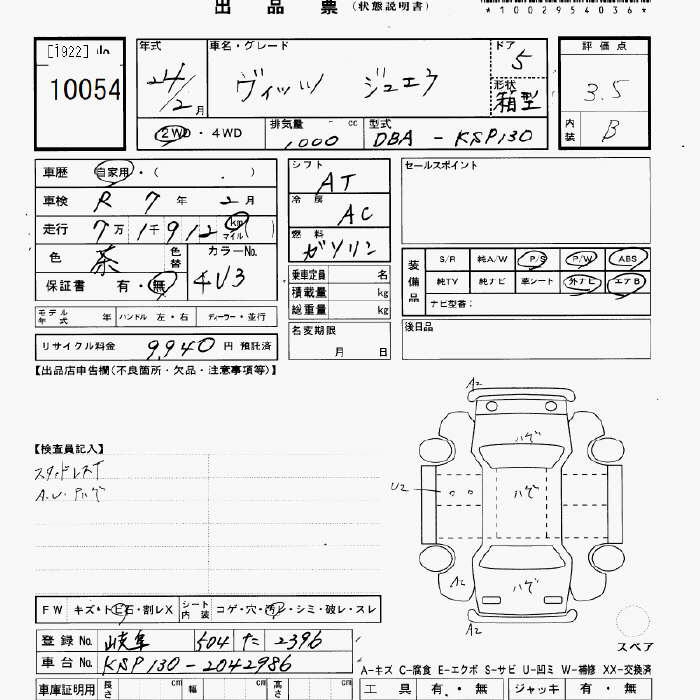 出品票 (状態説明書)
*1002954036*
[1922]
10054
年式 車名・グレード ドア 評価点
24/2月 ヴィッツ ジュエラ 5 3.5
形状 箱型
2WD・4WD 排気量 1,000 cc 型式 DBA-KSP130 内装 B
車歴 自家用・( ) シフト AT セールスポイント
車検 R 7年 2月 冷房 AC
走行 7万1千912 km マイル ( ) 燃料 ガソリン
色 茶 色替 カラーNo. 4V3
装備品 S/R 純A/W P/S P/W ABS
保証書 有・無 乗車定員 名 純TV 純ナビ 革シート 外ナビ エアB
積載量 kg ナビ型番:
モデル年式 年 ハンドル 左・右 ディーラー・並行 総重量 kg
リサイクル料金 9,940円 預託済 名変期限 月 日 後日品
【出品店申告欄(不良箇所・欠品・注意事項等)】
A2
ハゲ
【検査員記入】
スタッドレスT
A.W.アルゲ
U2 ハゲ
A2 ハゲ
A2
FW キズ・トビ石・割レX シート内装 コゲ・穴・汚レ・シミ・破レ・スレ
スペア
登録No. 岐阜 504 た 2396
車台No. KSP130-2042986
A-キズ C-腐食 E-エクボ S-サビ U-凹ミ W-補修 XX-交換済
車庫証明用 長さ cm 幅 cm 高さ cm 工具 有・無 ジャッキ 有・無